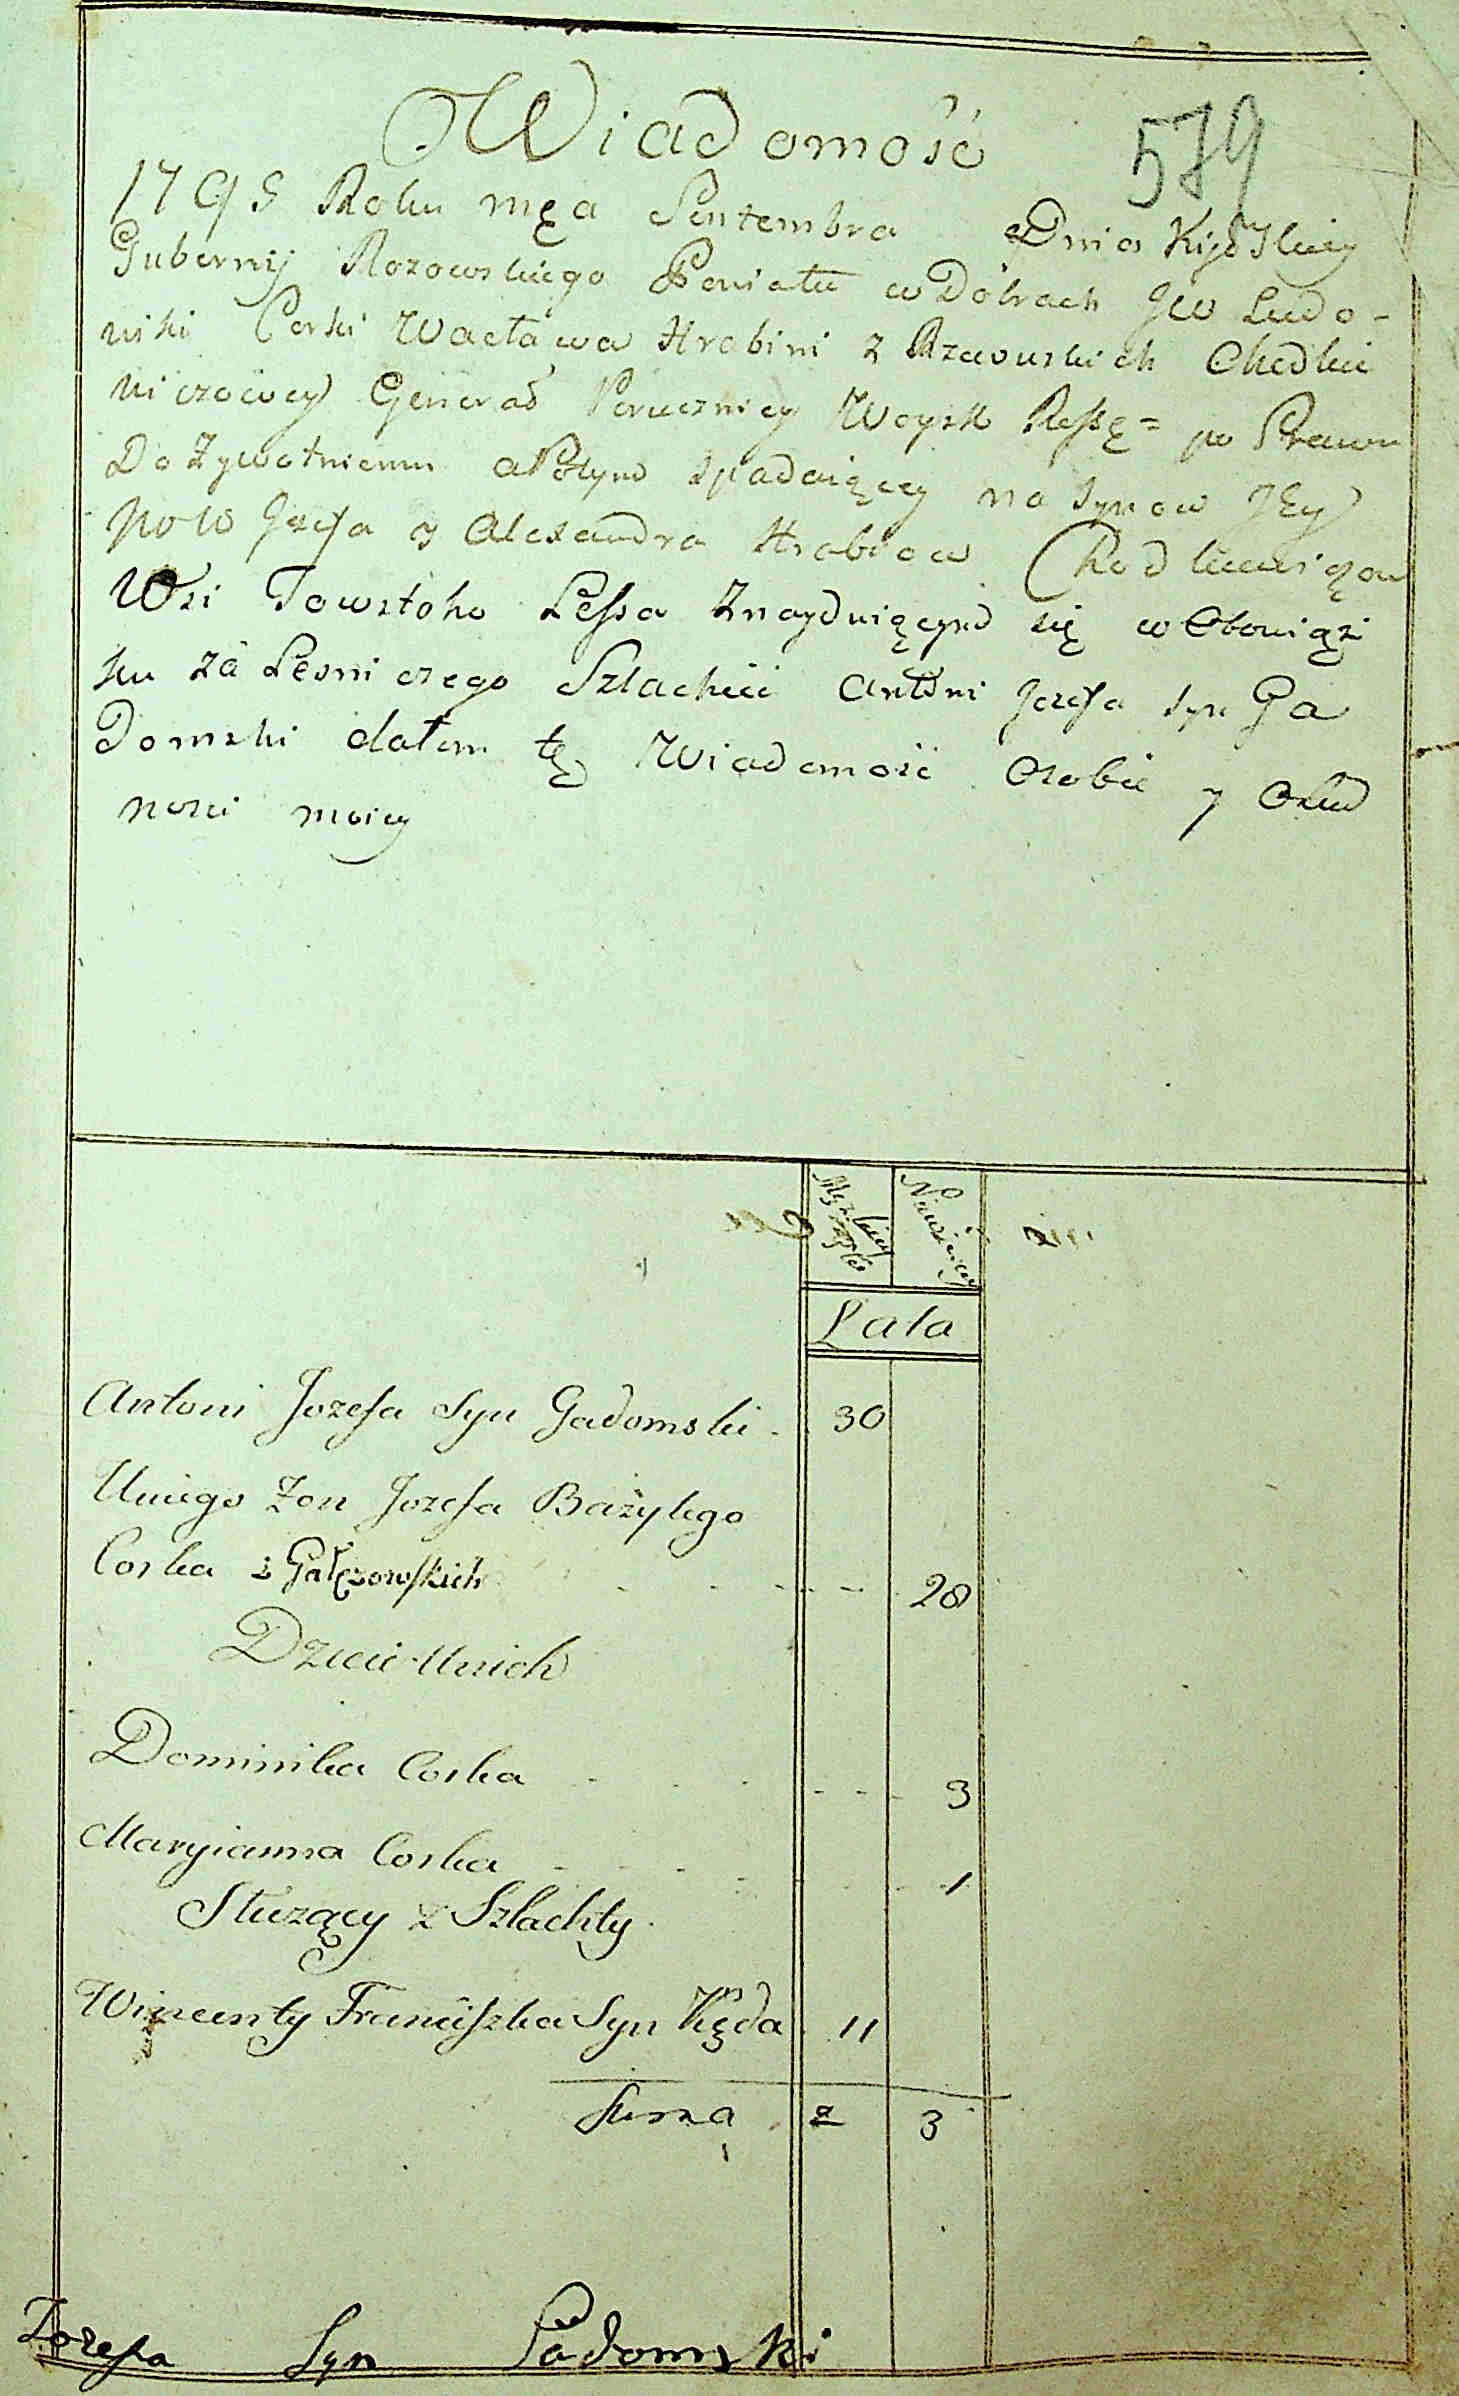 Wiadomość
579
1795 Roku męa Sentembra Dnia Kijoskiey
Gubernij Rozowskiego Powiatu w Dobrach JW Ludo-
wiki Corki Wacława Hrabini z Rzewuskich Chodkie
wiczowey Generał Porucznicy Woysk Rossę= po Prawu
Dożywotniemu a Potym spadaiącey na Synow JEy
Jozefa y Alexandra Hrabiow Chodkiewiczow
Wsi Towstoho Lessa Znayduiącym się w Obowiąz
ku za Lesniczego Szlachcic Antoni Jozefa syn Ga
Domski dałem tę Wiadomość Osobie y Osiad
nosci moiey
Męzkiey płci
Niewieściey
Lata
Antoni Jozefa Syn Gadomski 30
Uniego Zon Jozefa Bazylego
Corka z Gałęzowskich 28
Dzieci Unich
Dominika Corka 3
Maryianna Corka 1
Służący z Szlachty
Wincenty Franciszka Syn Kęda 11
Suma 2 3
Jozefa Syn Gadomski